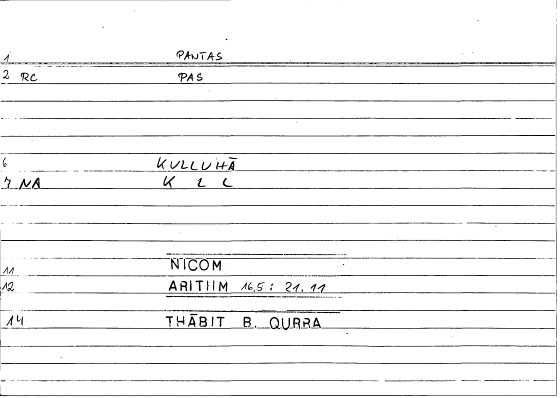 1 PANTAS
2 RC PAS
6 KULLUHĀ
7 NA K L L
11 NICOM
12 ARITIIM 16,5 : 21.11
14 THĀBIT B. QURRA